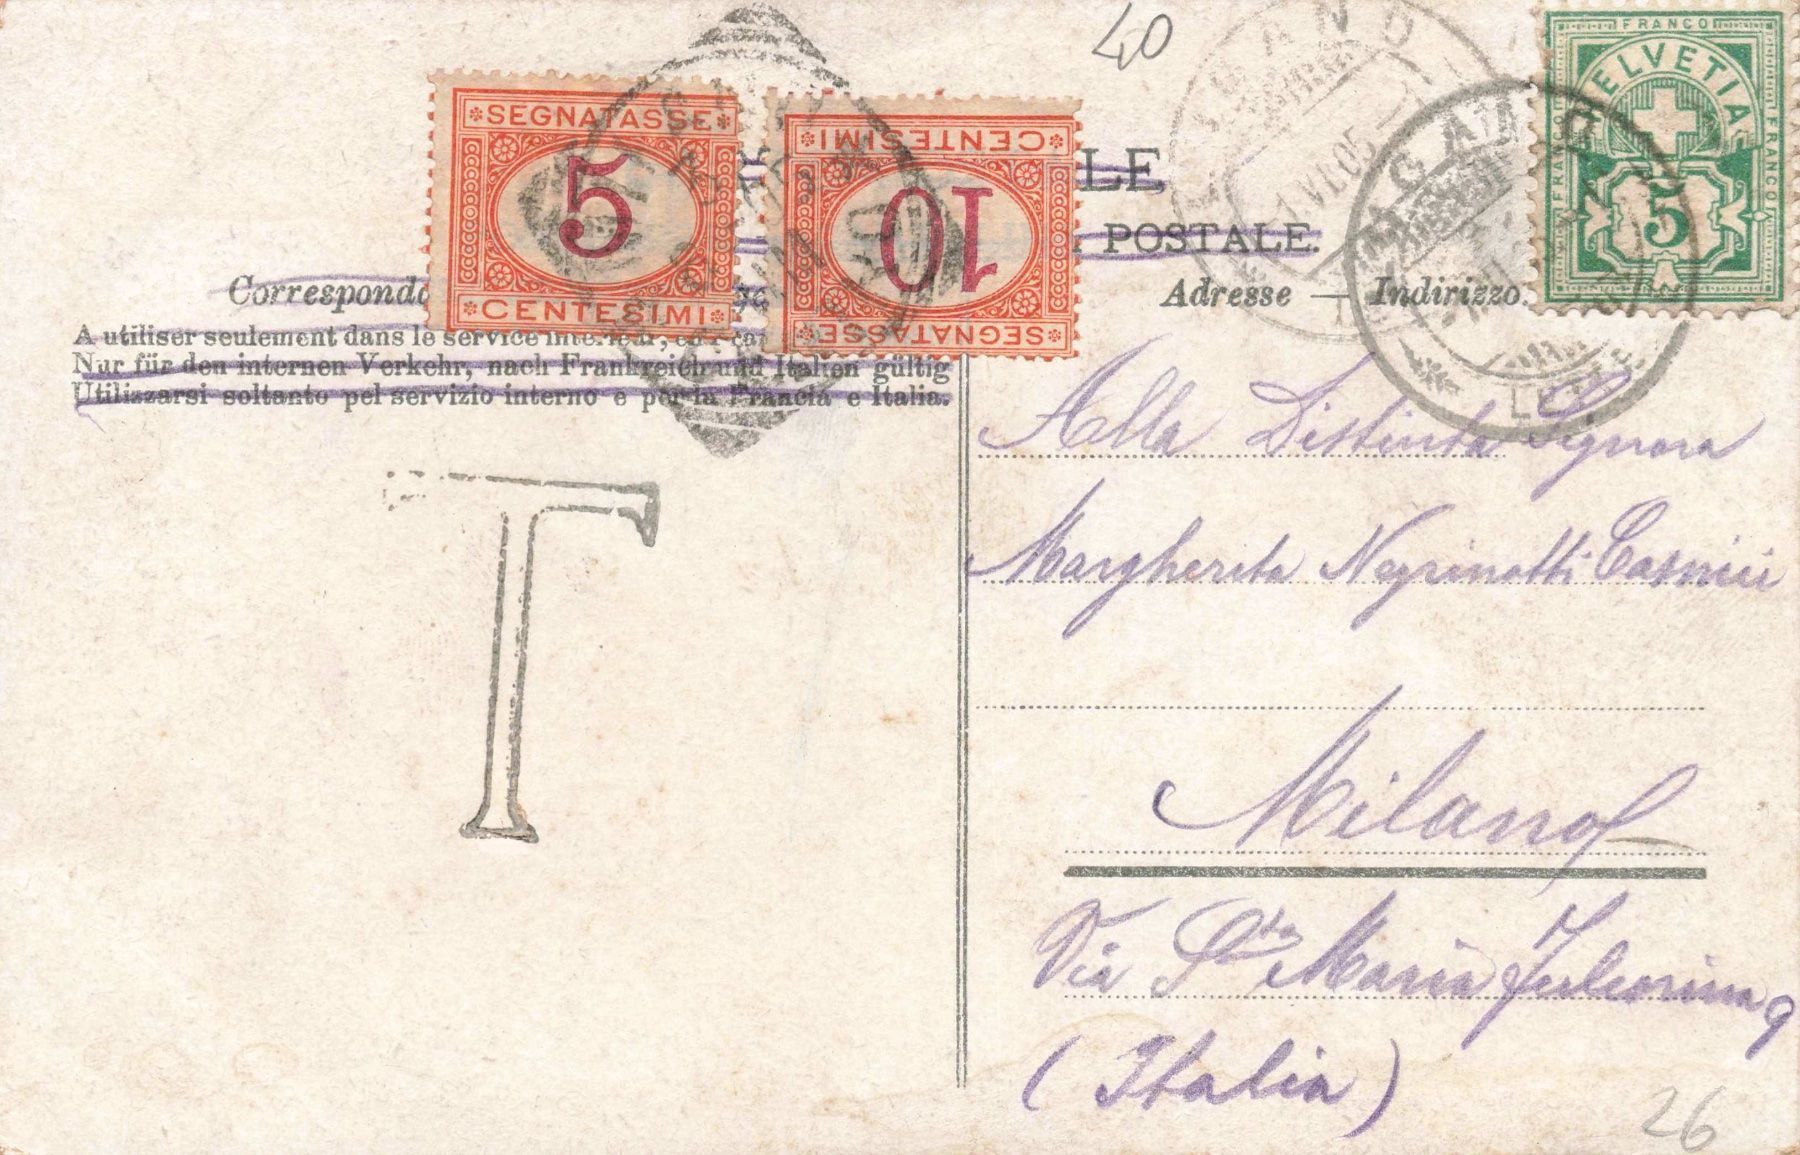 40
SEGNATASSE
5
CENTESIMI
CENTESIMI
10
SEGNATASSE
FRANCO
HELVETIA
FRANCO
FRANCO
5
LUGANO
VI.05
LUGANO
LE
POSTALE.
Adresse — Indirizzo.
A utiliser seulement dans le service
Nur für den internen Verkehr, nach Frankreich und Italien gültig
Utilizzarsi soltanto pel servizio interno e per la Francia e Italia.
T
Alla Distinta Signora
Margherita
Milano
Via Sta Maria Fulcorina 9
(Italia)
26